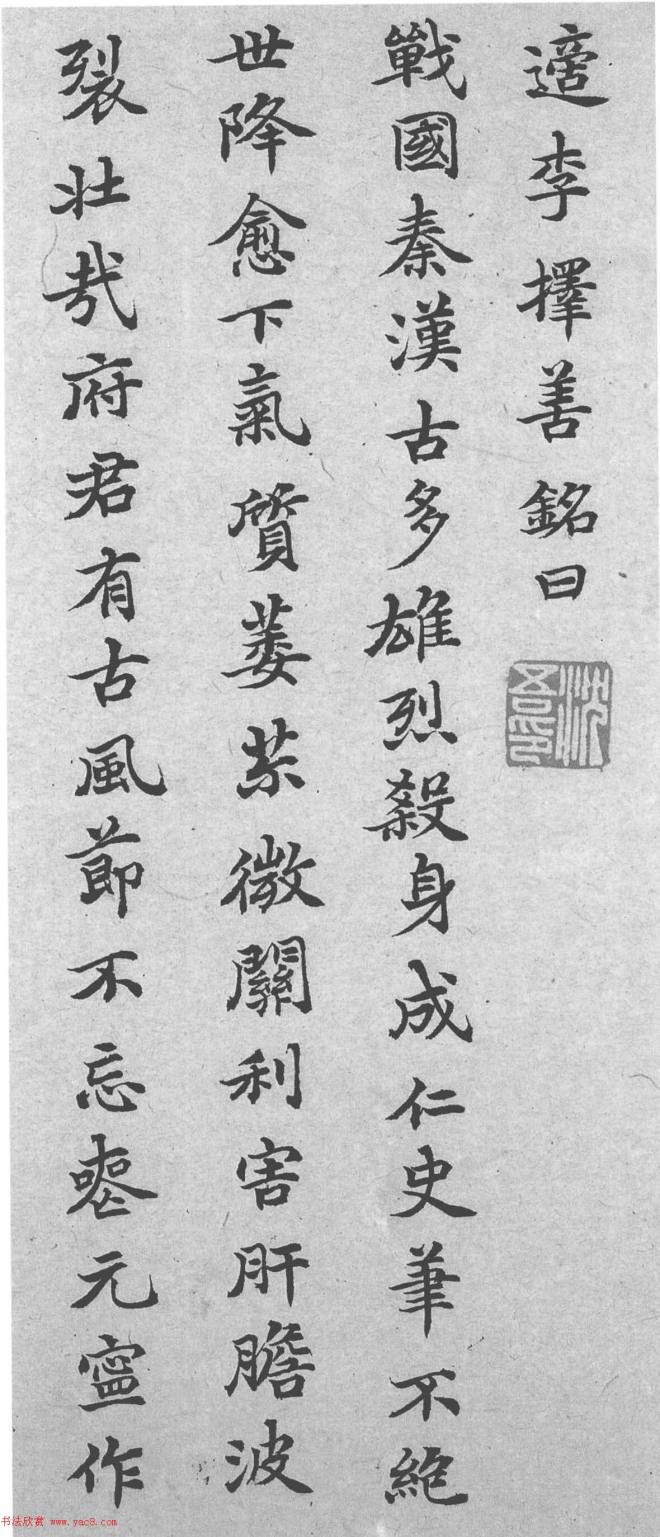 適李擇善銘曰
戰國秦漢古多雄烈殺身成仁史筆不絕
世降愈下氣質萎苶微關利害肝膽波
裂壯哉府君有古風節不忘喪元寧作
书法欣赏 www.yac8.com